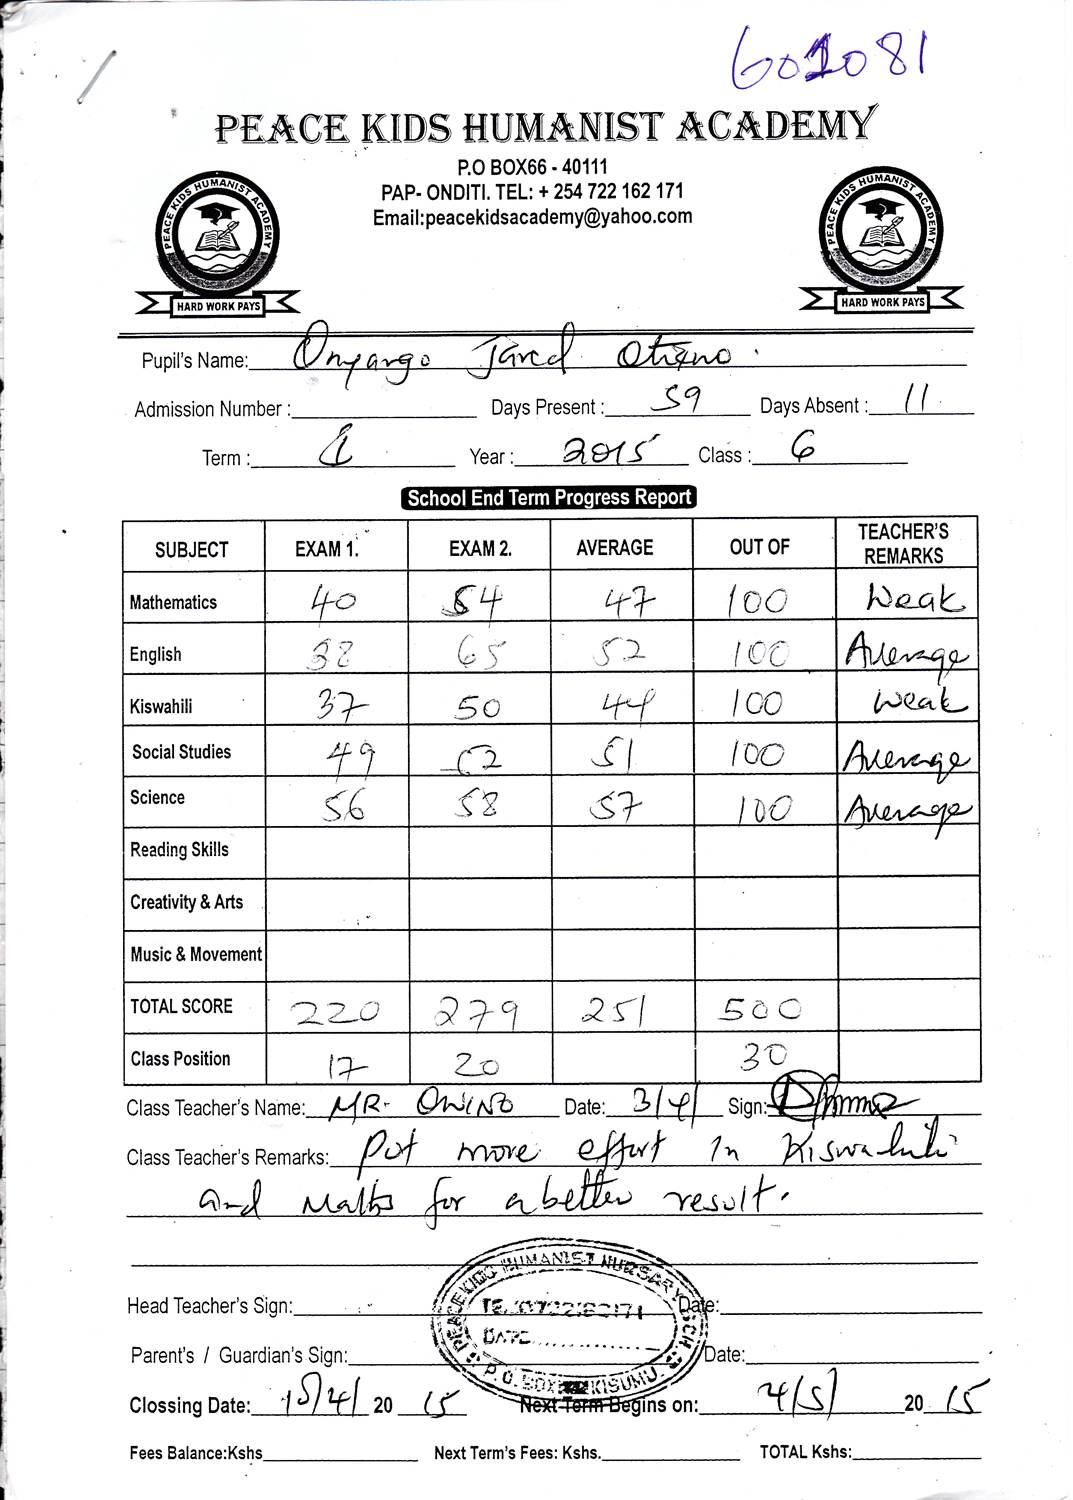 601081
PEACE KIDS HUMANIST ACADEMY
P.O BOX66 - 40111
PAP- ONDITI. TEL: + 254 722 162 171
Email:peacekidsacademy@yahoo.com
PEACE KIDS HUMANIST ACADEMY
HARD WORK PAYS
PEACE KIDS HUMANIST ACADEMY
HARD WORK PAYS
Pupil's Name: Onyango Jared Otieno.
Admission Number : Days Present : 59 Days Absent : 11
Term : 1 Year : 2015 Class : 6
School End Term Progress Report
SUBJECT EXAM 1. EXAM 2. AVERAGE OUT OF TEACHER'S REMARKS
Mathematics 40 54 47 100 Weak
English 38 65 52 100 Average
Kiswahili 37 50 44 100 Weak
Social Studies 49 52 51 100 Average
Science 56 58 57 100 Average
Reading Skills
Creativity & Arts
Music & Movement
TOTAL SCORE 220 279 251 500
Class Position 17 20 30
Class Teacher's Name: MR. OWINO Date: 3/4/ Sign:
Class Teacher's Remarks: Put more effort in Kiswahili
and Maths for a better result.
PEACE KIDS HUMANIST NURSARY SCH.
TEL:0722162171
DATE..............
P.O. BOX KISUMU.
Head Teacher's Sign: Date:
Parent's / Guardian's Sign: Date:
Clossing Date: 15/4/ 20 15 Next Term Begins on: 4/5/ 20 15
Fees Balance:Kshs Next Term's Fees: Kshs. TOTAL Kshs: